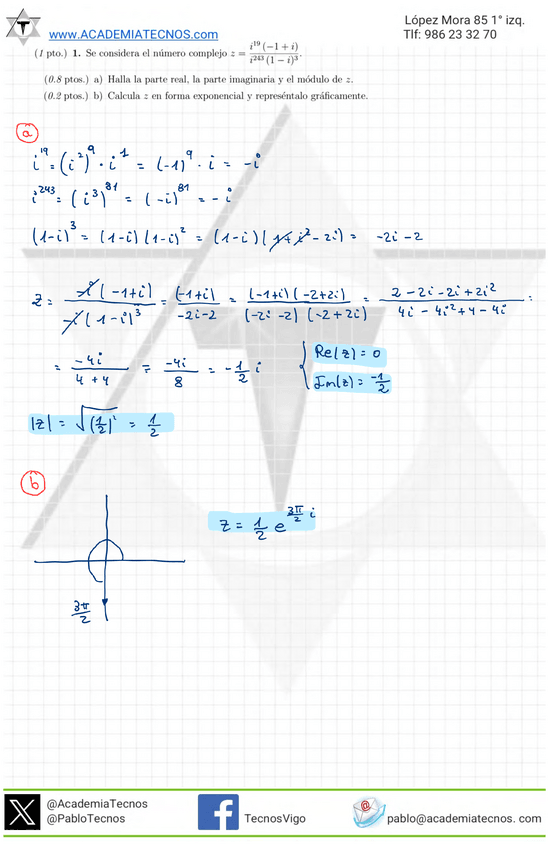 www.ACADEMIATECNOS.com
López Mora 85 1° izq.
Tlf: 986 23 32 70
(1 pto.) 1. Se considera el número complejo z = i^19 (−1 + i) / i^243 (1 − i)^3.
(0.8 ptos.) a) Halla la parte real, la parte imaginaria y el módulo de z.
(0.2 ptos.) b) Calcula z en forma exponencial y represéntalo gráficamente.
a
i^19 = (i^2)^9 · i^1 = (-1)^9 · i = -i
i^243 = (i^3)^81 = (-i)^81 = -i
(1-i)^3 = (1-i)(1-i)^2 = (1-i)(1+i^2-2i) = -2i-2
z = -i(-1+i) / -i(1-i)^3 = (-1+i) / -2i-2 = (-1+i)(-2+2i) / (-2i-2)(-2+2i) = 2-2i-2i+2i^2 / 4i-4i^2+4-4i =
= -4i / 4+4 = -4i / 8 = -1/2 i
Re(z) = 0
Im(z) = -1/2
|z| = √(1/2)^2 = 1/2
b
z = 1/2 e^(3π/2 i)
3π/2
@AcademiaTecnos
@PabloTecnos
TecnosVigo
pablo@academiatecnos. com